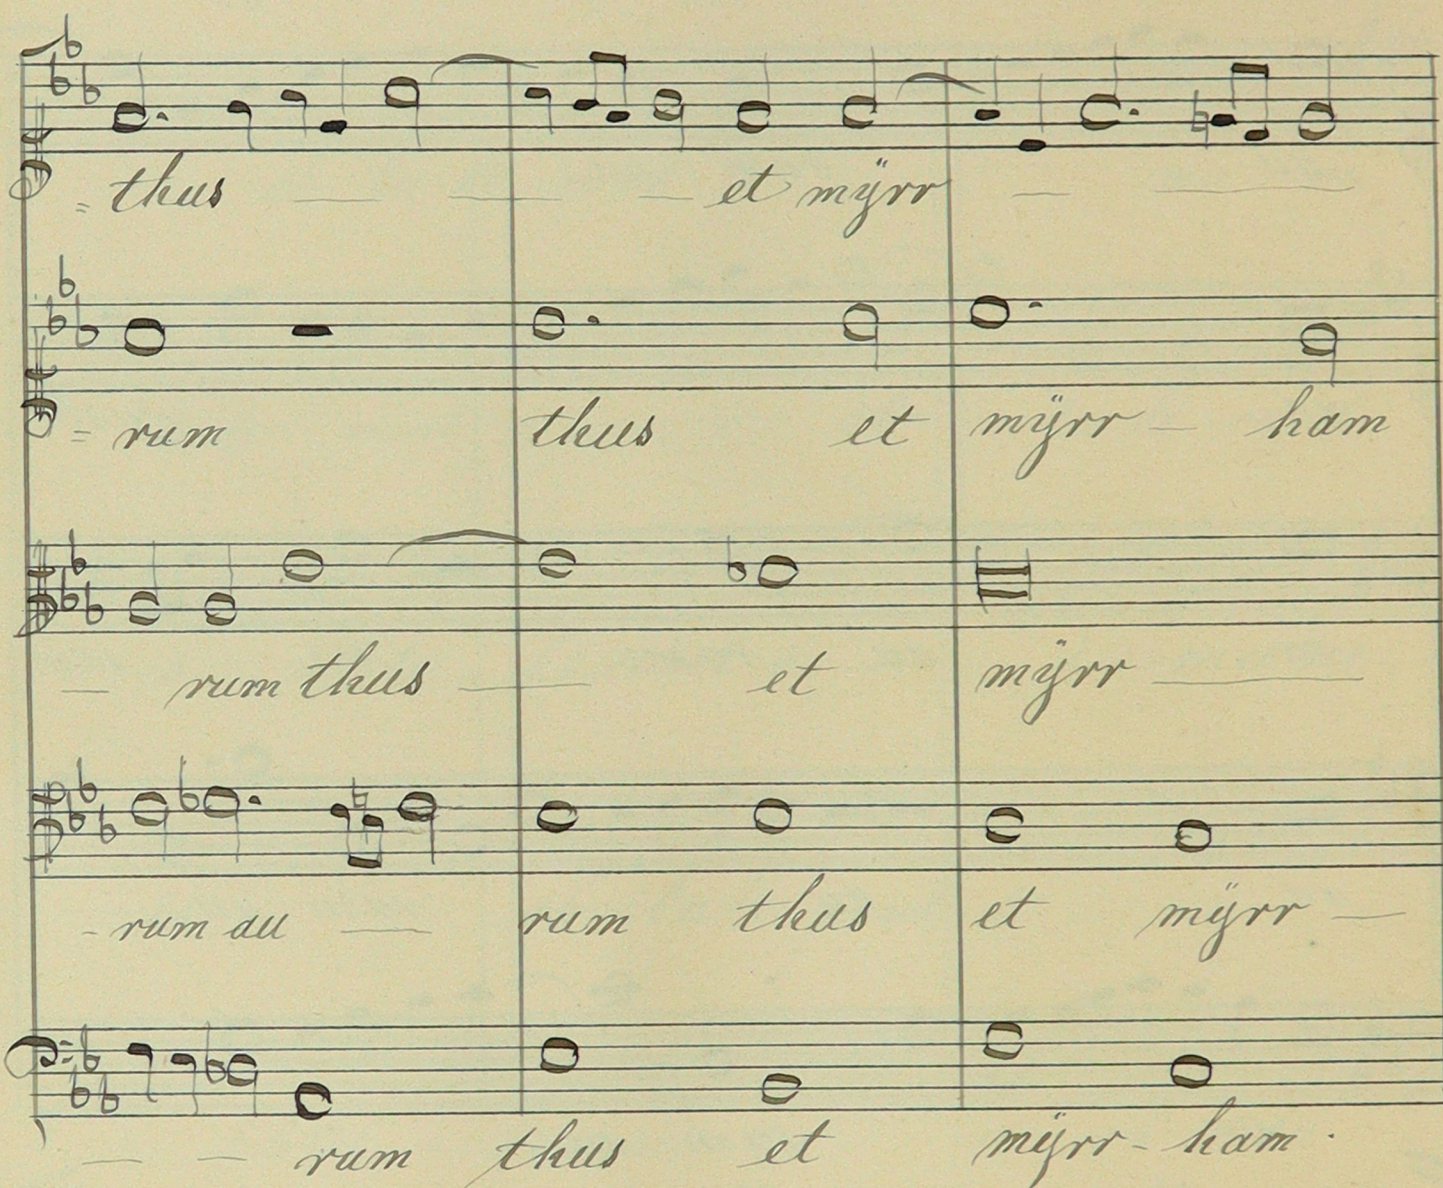 = thus — — — et mÿrr — —
= rum thus et mÿrr — ham
— rum thus — et mÿrr —
- rum au — rum thus et mÿrr —
— — rum thus et mÿrr - ham .